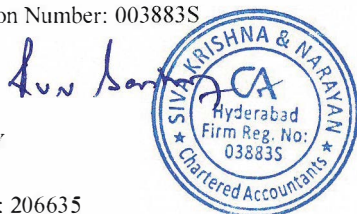 on Number: 003883S
SIVA KRISHNA & NARAYAN
CA
Hyderabad
Firm Reg. No:
03883S
★ Chartered Accountants ★
Y
: 206635